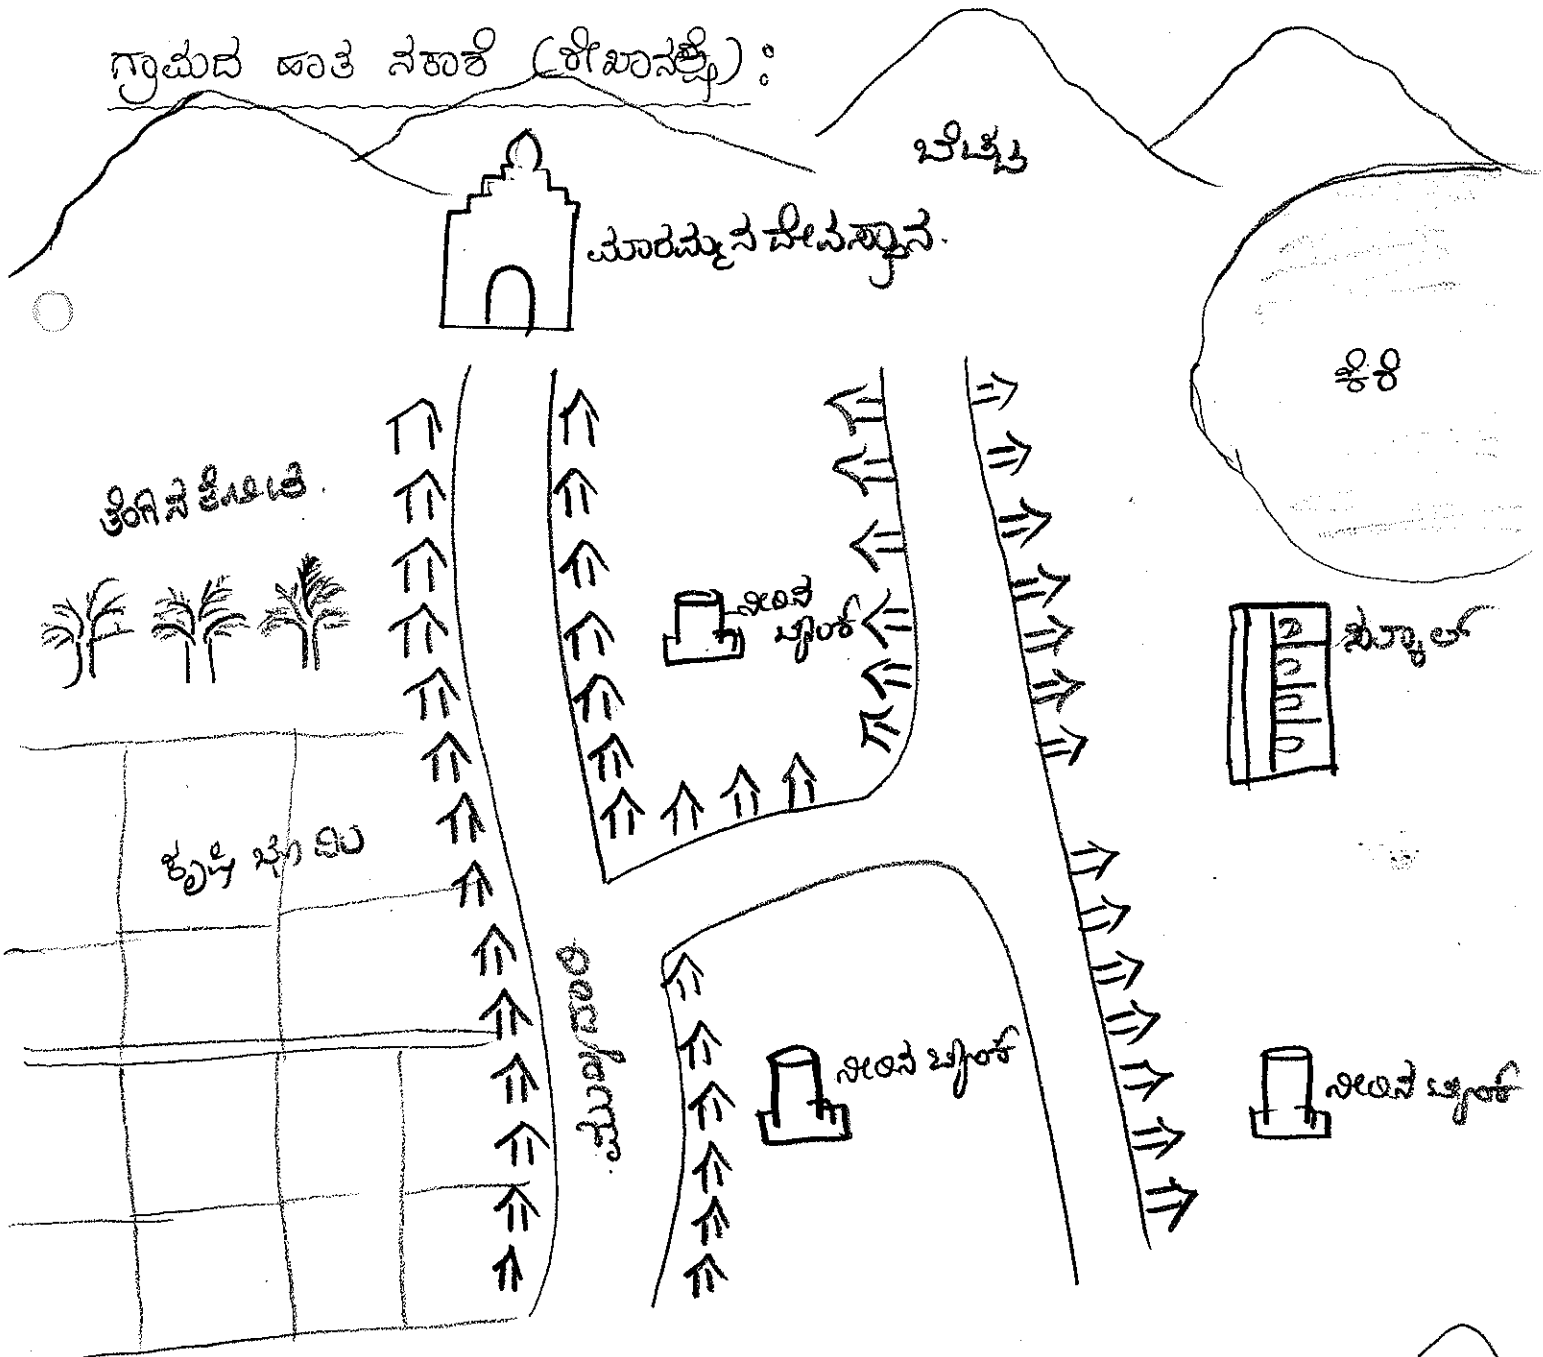 ಗ್ರಾಮದ ಹಾತ ನಕಾಶೆ (ರೇಖಾನಕ್ಷೆ) :
ಬೆಟ್ಟ
ಮಾರಮ್ಮನ ದೇವಸ್ಥಾನ.
ಕೆರೆ
ತೆಂಗಿನ ತೋಟ.
ನೀರಿನ
ಟ್ಯಾಂಕ್
ಸ್ಕೂಲ್
ಕೃಷಿ ಭೂಮಿ
ನೀರಿನ ಟ್ಯಾಂಕ್
ನೀರಿನ ಟ್ಯಾಂಕ್